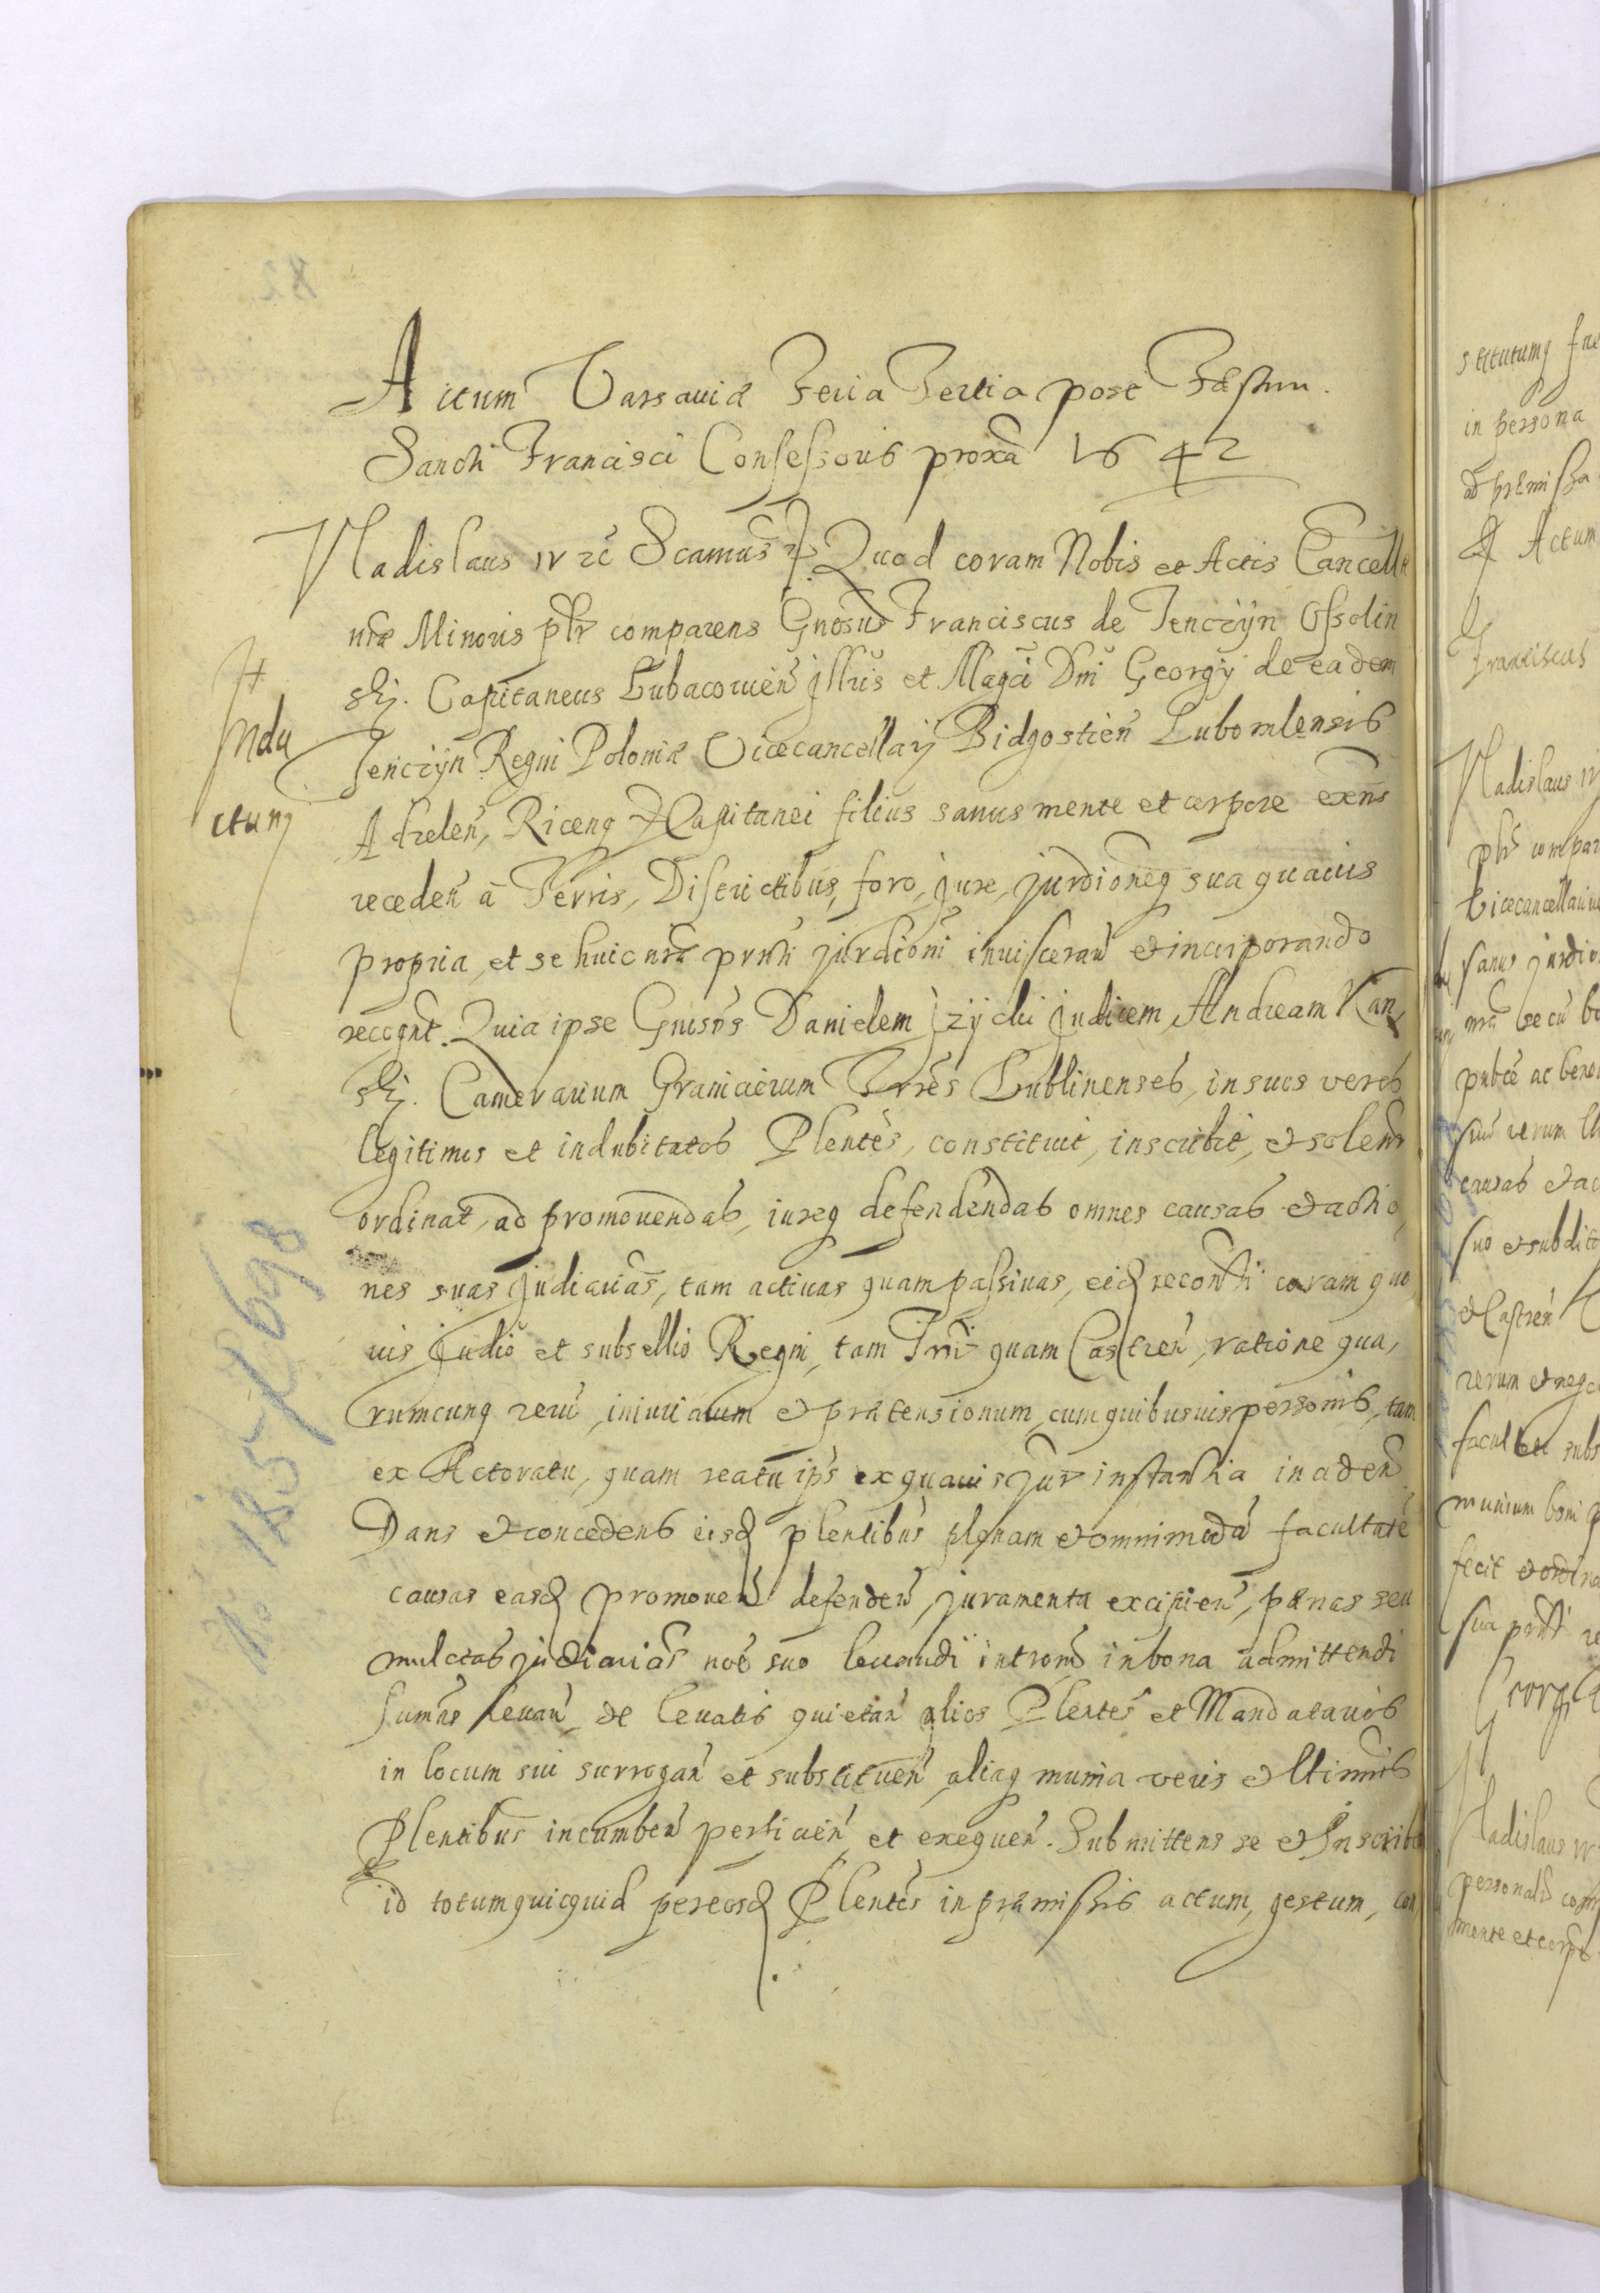 Actum Varsaviæ Feria Tertia post Fæstum.
Sancti Francisci Confessoris proxa 1642
Vladislaus IV etc Scamus etc. Quod coram Nobis et Actis Cancell
nræ Minoris plr comparens Gnosus Franciscus de Tenczyn Ossolin
ski. Capitaneus Lubacovien Illris et Magci Dni Georgy de eadem
Tenczyn Regni Poloniæ Vicecancellarij Bidgostien Lubomlensis
Adzelen, Riceng Capitanei filius sanus mente et corpore exns
receden a Terris, Districtibus, foro, jure, jurdioneq sua quavis
propria, et se huic nræ prnti jurdioni invisceran et incorporando
recognt. Quia ipse Gnosus Danielem judicem Andream Kan,
ski. Camerarium Granicierum Terres Lublinenses, in suos veros
legitimos et indubitatos Plentes, constituit, inscribit, et solenr
ordinat, ad promovendas, iureq defendendas omnes causas et actio,
nes suas judiciarias, tam activas quam passivas, eidq reconti coram quo
vis judio et subsellio Regni, tam Trri quam Castren, ratione qua,
rumcunq reru, iniuriarum et prætensionum, cum quibusvis personis, tam
ex Actoratu, quam reatu ips ex quavis jur instantia inaden
Dans et concedens eisdq plentibus plenam et omnimoda facultate
causas easdq promoven defenden, juramenta excipien, pænas seu
mulctas judiciarias noe suo levandi introm in bona admittendi
sumas levan, de levatis quietan alios Plentes et Mandatarios
in locum sui surrogan et substituen, aliaq munia veris et ltimis
Plentibus incumben perficien et exequen. Submittens se et Inscribe
id totum quicquid per eosdq Plentes in præmissis actum, gestum, con
Indu
ctum
82
No 185 f 698
stitutumq
in persona
ad præmissa
Actum
Franciscus
Vladislaus IV
plr compar
Vicecancellariu
sanus jurdio